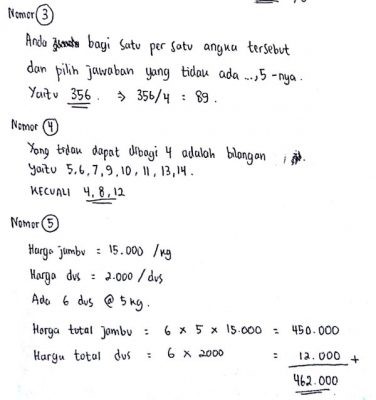 Nomor 3
Anda bagi satu per satu angka tersebut
dan pilih jawaban yang tidak ada ...,5 -nya.
Yaitu 356. ⇒ 356/4 = 89.
Nomor 4
Yang tidak dapat dibagi 4 adalah bilangan :
Yaitu 5,6,7,9,10,11,13,14.
KECUALI 4,8,12
Nomor 5
Harga jambu = 15.000 /kg
Harga dus = 2.000 / dus
Ada 6 dus @ 5 kg.
Harga total jambu = 6 × 5 × 15.000 = 450.000
Harga total dus = 6 × 2000 = 12.000 +
462.000